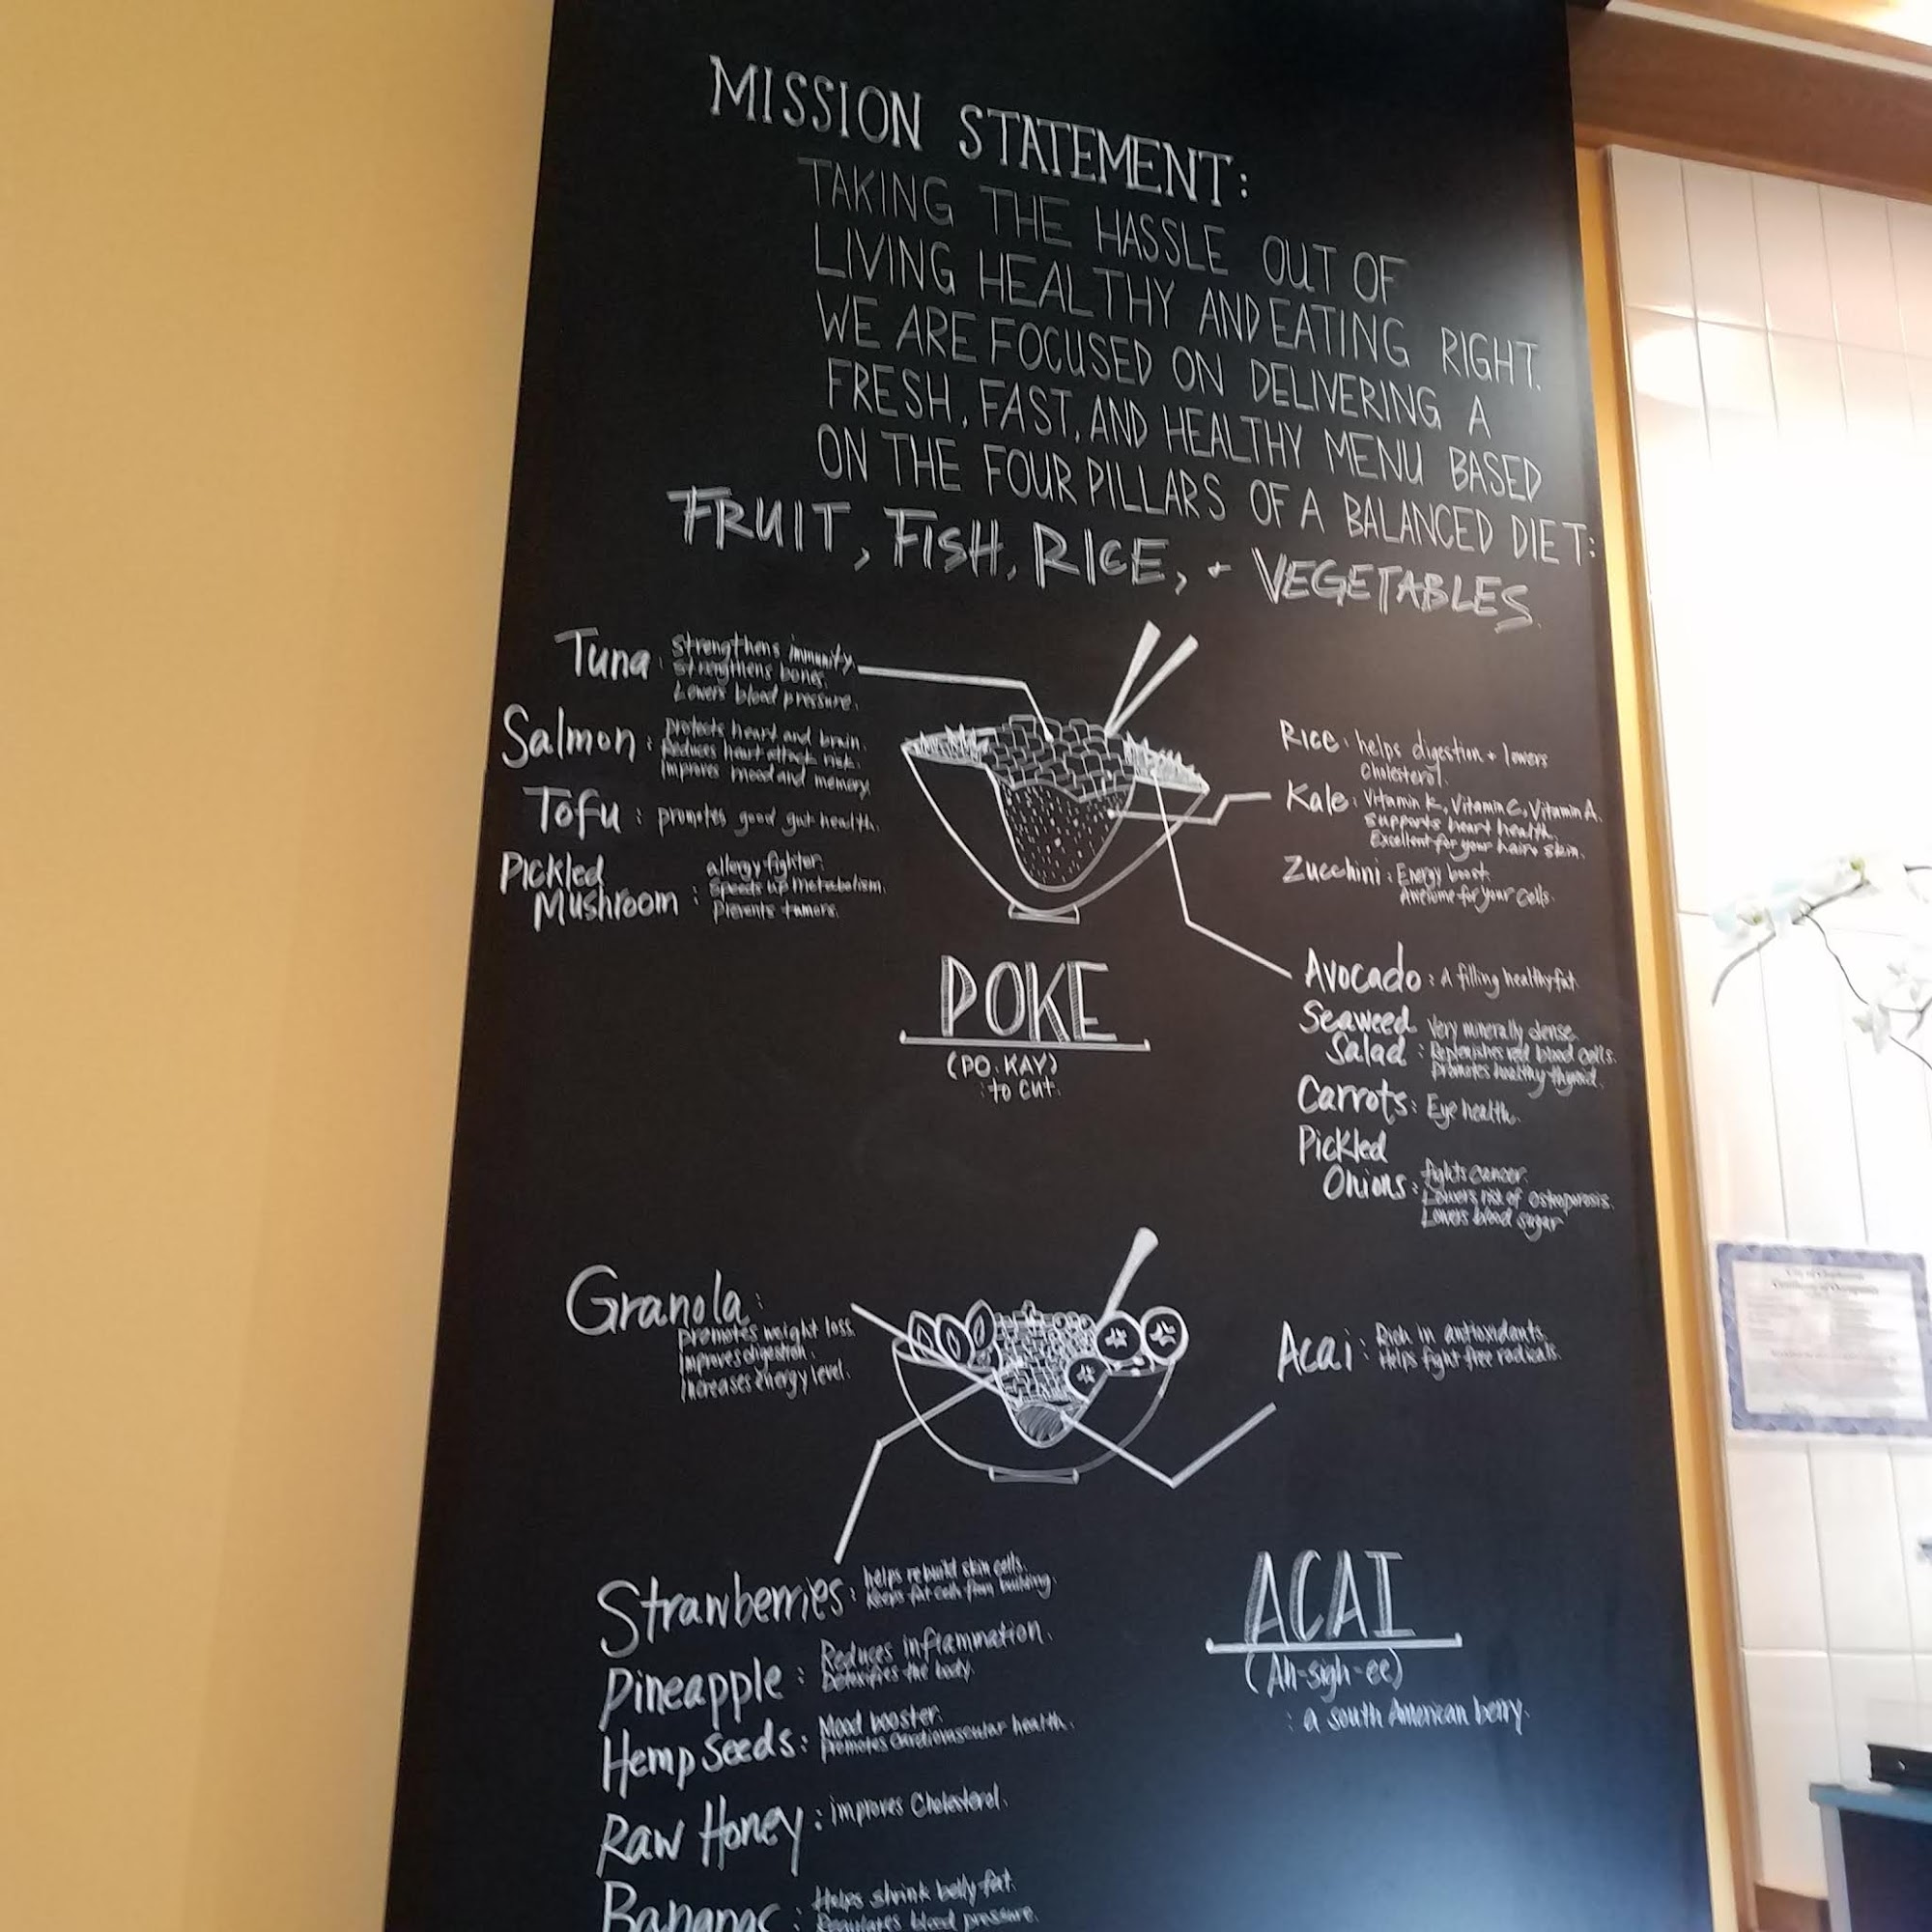 MISSION STATEMENT:
TAKING THE HASSLE OUT OF
LIVING HEALTHY AND EATING RIGHT.
WE ARE FOCUSED ON DELIVERING A
FRESH, FAST, AND HEALTHY MENU BASED
ON THE FOUR PILLARS OF A BALANCED DIET:
FRUIT, FISH, RICE, + VEGETABLES
Tuna: Strengthens immunity.
Strengthens bones.
Lowers blood pressure.
Salmon: protects heart and brain.
Reduces heart attack risk.
Improves mood and memory.
Tofu: promotes good gut health.
Pickled
Mushroom: allergy fighter.
Speeds up metabolism.
Prevents tumors.
Rice: helps digestion + lowers
Cholesterol.
Kale: Vitamin K, Vitamin C, Vitamin A.
Supports heart health.
Excellent for your hair + skin.
Zucchini: Energy boost.
Awesome for your cells.
Avocado: A filling healthy fat.
Seaweed
Salad: Very minerally dense.
Replenishes red blood cells.
Promotes healthy thyroid.
Carrots: Eye health.
Pickled
Onions: fights cancer.
Lowers risk of osteoporosis.
Lowers blood sugar
POKE
(PO. KAY)
: to cut.
Granola:
promotes weight loss.
Improves digestion.
Increases energy level.
Acai: Rich in antioxidants.
Helps fight free radicals.
Strawberries: helps rebuild skin cells.
Keeps fat cells from building.
Pineapple: Reduces inflammation.
Detoxifies the body.
Hemp Seeds: Mood booster.
promotes Cardiovascular health.
Raw Honey: improves Cholesterol.
Bananas: Helps shrink belly fat.
Regulates blood pressure.
ACAI
(Ah-sigh-ee)
: a south American berry.